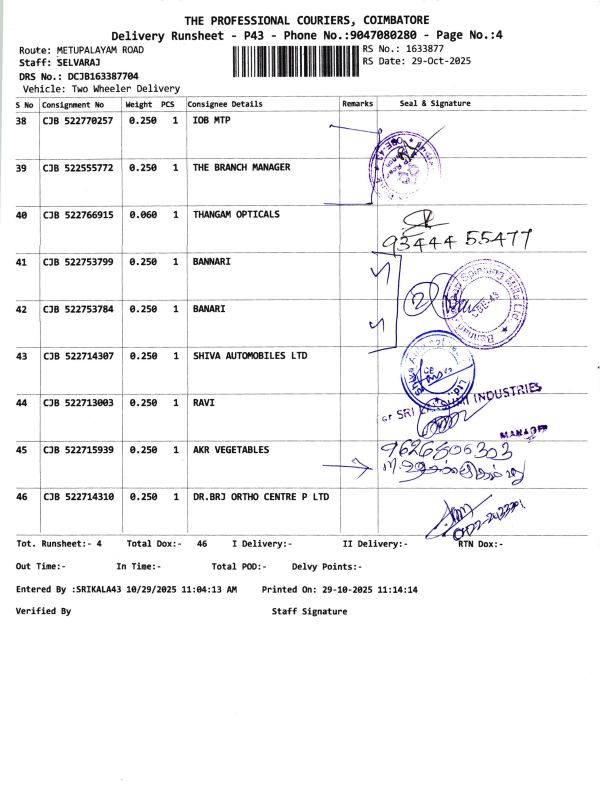 THE PROFESSIONAL COURIERS, COIMBATORE
Delivery Runsheet - P43 - Phone No.:9047080280 - Page No.:4
Route: METUPALAYAM ROAD RS No.: 1633877
Staff: SELVARAJ RS Date: 29-Oct-2025
DRS No.: DCJB163387704
Vehicle: Two Wheeler Delivery
S No Consignment No Weight PCS Consignee Details Remarks Seal & Signature
38 CJB 522770257 0.250 1 IOB MTP
39 CJB 522555772 0.250 1 THE BRANCH MANAGER
40 CJB 522766915 0.060 1 THANGAM OPTICALS
93444 55477
41 CJB 522753799 0.250 1 BANNARI
42 CJB 522753784 0.250 1 BANARI
2
Spinning Mills Ltd
CBE-43
43 CJB 522714307 0.250 1 SHIVA AUTOMOBILES LTD
44 CJB 522713003 0.250 1 RAVI
SRI INDUSTRIES
MANAGER
45 CJB 522715939 0.250 1 AKR VEGETABLES
46 CJB 522714310 0.250 1 DR.BRJ ORTHO CENTRE P LTD
Tot. Runsheet:- 4 Total Dox:- 46 I Delivery:- II Delivery:- RTN Dox:-
Out Time:- In Time:- Total POD:- Delvy Points:-
Entered By :SRIKALA43 10/29/2025 11:04:13 AM Printed On: 29-10-2025 11:14:14
Verified By Staff Signature